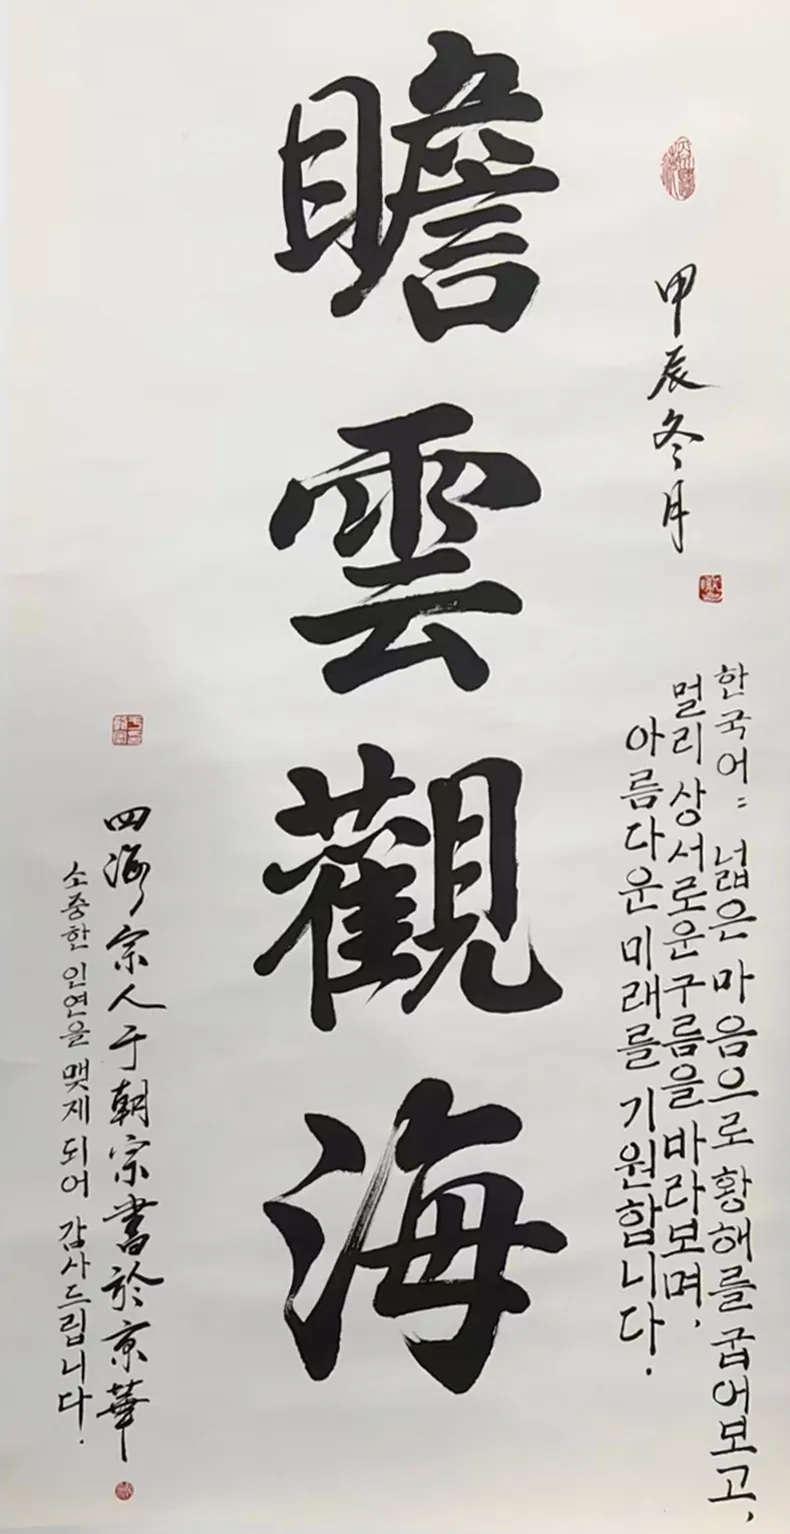 甲辰冬月
한국어: 넓은 마음으로 황해를 굽어보고,
멀리 상서로운구름을 바라보며,
아름다운 미래를 기원함니다.
瞻雲觀海
四海宗人于朝宗書於京華
소중한 인연을 맺게 되어 감사드립니다.